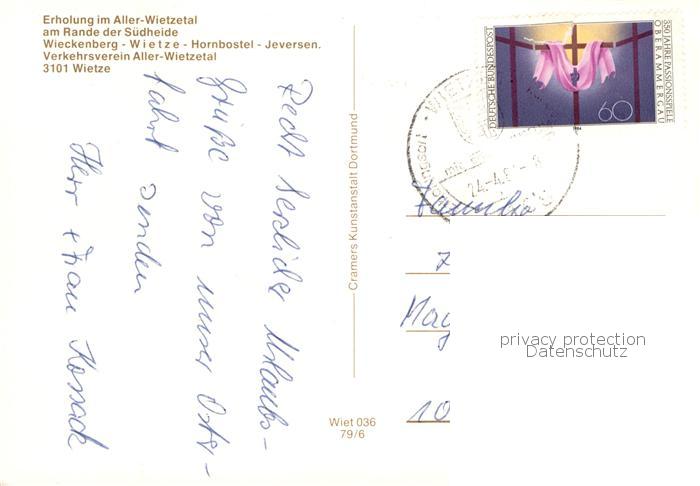 Erholung im Aller-Wietzetal
am Rande der Südheide
Wieckenberg - Wietze - Hornbostel - Jeversen.
Verkehrsverein Aller-Wietzetal
3101 Wietze
Recht herzliche Urlaubs-
grüße von unser Oster-
fahrt senden
Herr + Frau Kossack
Cramers Kunstanstalt Dortmund
Wiet 036
79/6
DEUTSCHE BUNDESPOST
350 JAHRE PASSIONSSPIELE
OBERAMMERGAU
60
24.4.
Familie
10
privacy protection
Datenschutz